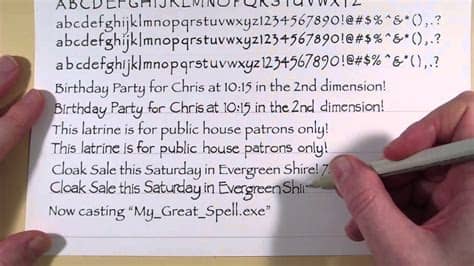 ABCDEFGHIJKLMNOPQRSTUVWXYZ
abcdefghijklmnopqrstuvwxyz1234567890!@#$%^&*(),.?
abcdefghijklmnopqrstuvwxyz1234567890!@#$%^&*(),.?
Birthday Party for Chris at 10:15 in the 2nd dimension!
Birthday Party for Chris at 10:15 in the 2nd dimension!
This latrine is for public house patrons only!
This latrine is for public house patrons only!
Cloak Sale this Saturday in Evergreen Shire! 7
Cloak Sale this Saturday in Evergreen Shi
Now casting “My_Great_Spell.exe”